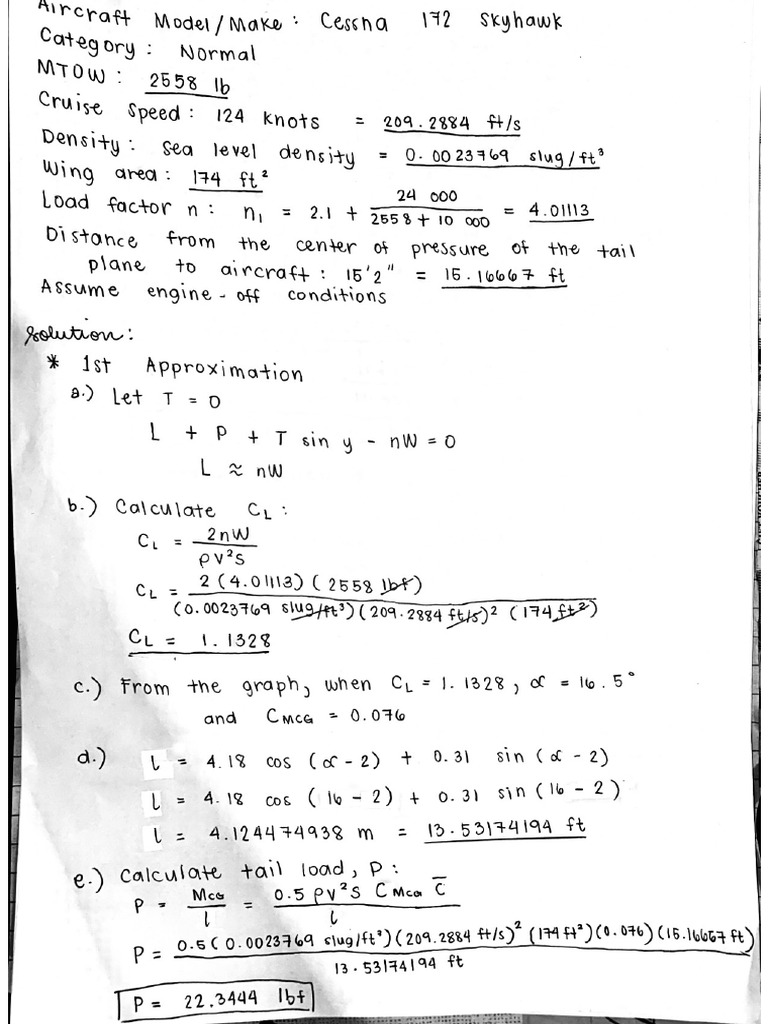 Aircraft Model/Make: Cessna 172 Skyhawk
Category: Normal
MTOW: 2558 lb
Cruise speed: 124 Knots = 209.2884 ft/s
Density: sea level density = 0.0023769 slug/ft³
Wing area: 174 ft²
Load factor n: n₁ = 2.1 + 24 000 / 2558 + 10 000 = 4.01113
Distance from the center of pressure of the tail
plane to aircraft: 15'2" = 15.16667 ft
Assume engine-off conditions
Solution:
* 1st Approximation
a.) Let T = 0
L + P + T sin y - nW = 0
L ≈ nW
b.) Calculate CL:
CL = 2nW / ρV²S
CL = 2(4.01113)(2558 lbf) / (0.0023769 slug/ft³)(209.2884 ft/s)²(174 ft²)
CL = 1.1328
c.) From the graph, when CL = 1.1328, α = 16.5°
and CMCG = 0.076
d.) l = 4.18 cos (α - 2) + 0.31 sin (α - 2)
l = 4.18 cos (16 - 2) + 0.31 sin (16 - 2)
l = 4.124474938 m = 13.53174194 ft
e.) Calculate tail load, P:
P = MCG / l = 0.5 ρV²S CMCG c̅ / l
P = 0.5(0.0023769 slug/ft³)(209.2884 ft/s)²(174 ft²)(0.076)(15.16667 ft) / 13.53174194 ft
P = 22.3444 lbf